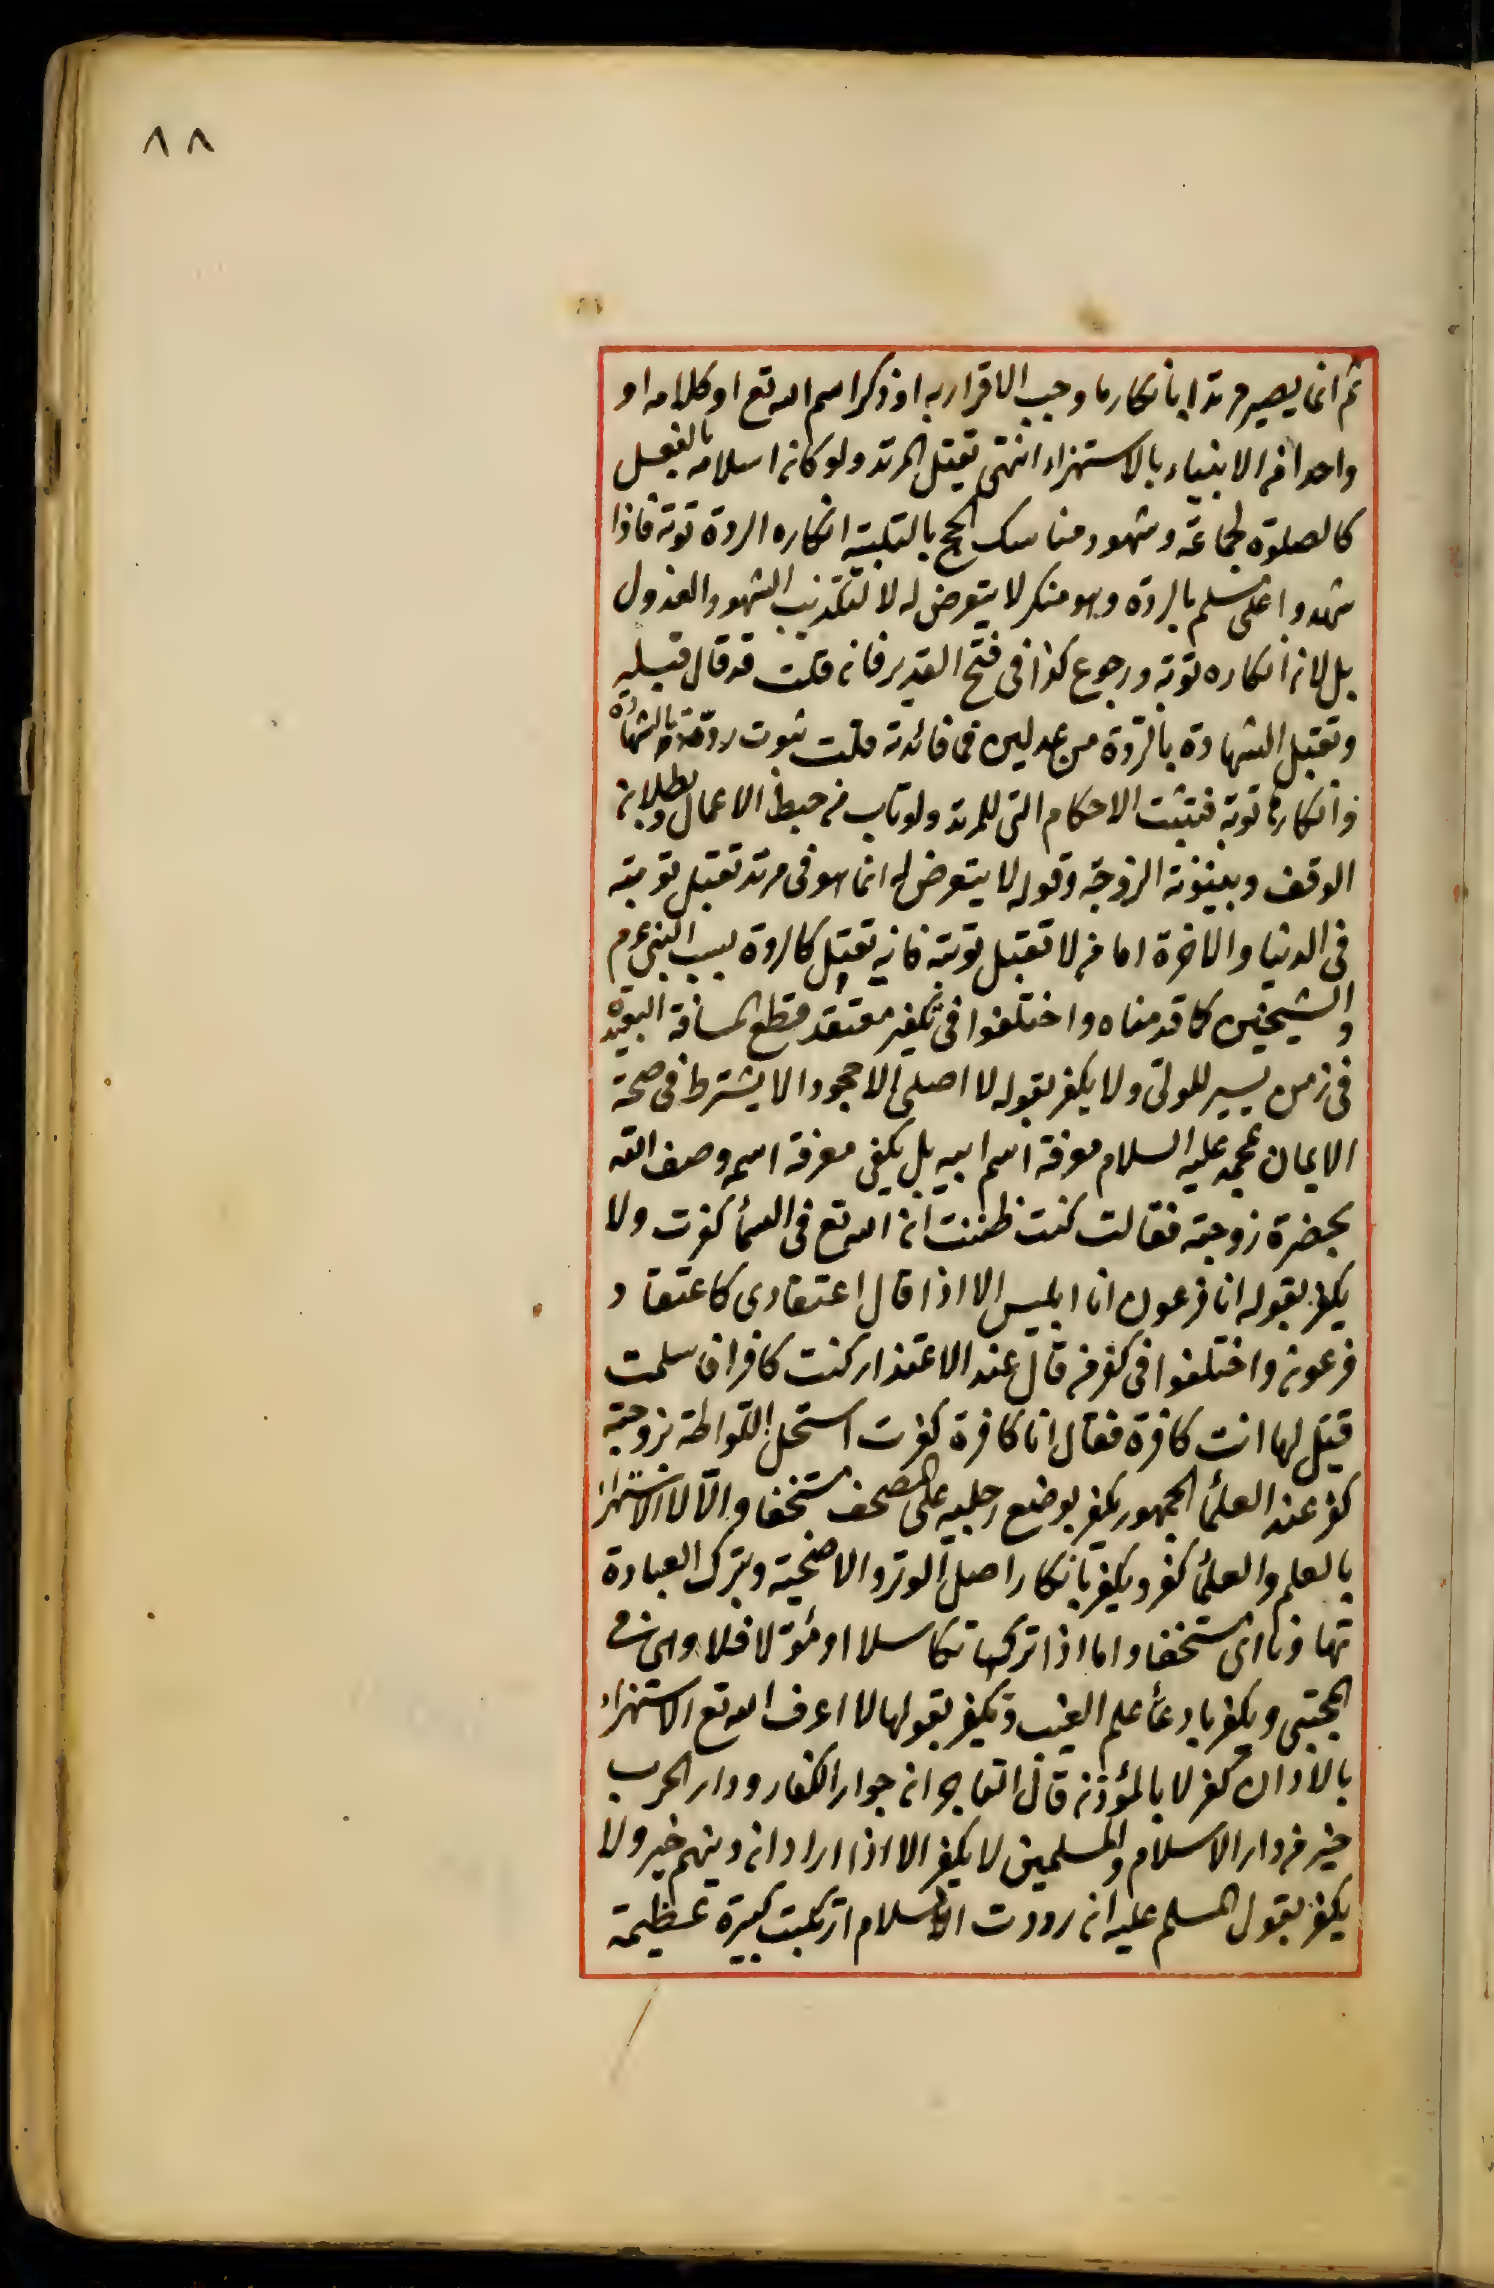 ٨٨
ثم انما يصير مرتدا بانكار ما وجب الاقرار به او ذكر اسم الله تع او كلامه او
واحدا من الانبياء بالاستهزاء انتهى تقتل المرتد ولو كان اسلامه بالفعل
كالصلوة بجماعة وشهود مناسك الحج بالتلبية انكاره الردة توبة فاذا
شهدوا على مسلم بالردة وهو منكر لا يتعرض له لا لتكذيب الشهود العدول
بل لان انكاره توبة ورجوع كذا فى فتح القدير فان قلت قد قال قبيله
وتقبل الشهادة بالردة من عدلين فما فائدته قلت ثبوت ردته بالشهادة
وانكارها توبة فتثبت الاحكام التى للمرتد ولو تاب من حبط الاعمال وبطلان
الوقف وبينونة الزوجة وقوله لا يتعرض له انما هو فى مرتد تقبل توبته
فى الدنيا والاخرة اما من لا تقبل توبته فانه تقتل كالردة بسب النبى ءم
والشيخين كما قدمناه واختلفوا فى تكفير معتقد قطع المسافة البعيدة
فى زمن يسير للولى ولا يكفر بقوله لا اصلى الا جحودا لا يشترط فى صحة
الايمان بمحمد عليه السلام معرفة اسم ابيه بل يكفى معرفة اسمه وصف الله
بحضرة زوجته فقالت كنت ظننت ان الله تع فى السمأ كفرت ولا
يكفر بقوله انا فرعون انا ابليس الا اذا قال اعتقادى كاعتقاد
فرعون واختلفوا فى كفر من قال عند الاعتذار كنت كافرا فاسلمت
قيل لها انت كافرة فقال انا كافرة كفرت استحل اللواطة بزوجته
كفر عند العلمأ الجمهور يكفر بوضع رجليه على المصحف مستخفا والا لا الاستهزاء
بالعلم والعلمأ كفر ويكفر بانكار اصل الوتر والاضحية وبترك العبادة
تهاونا اى مستخفا واما اذا تركها تكاسلا او مؤلا فلا وهى فى
المجتبى ويكفر بادعأ علم الغيب وتكفر بقولها لا اعرف الله تع الاستهزاء
بالاذان كفر لا بالمؤذن قال التاجر ان جوار الكفار ودار الحرب
خير من دار الاسلام والمسلمين لا يكفر الا اذا اراد ان دينهم خير ولا
يكفر بقول المسلم عليه ان رددت السلام ارتكبت كبيرة عظيمة